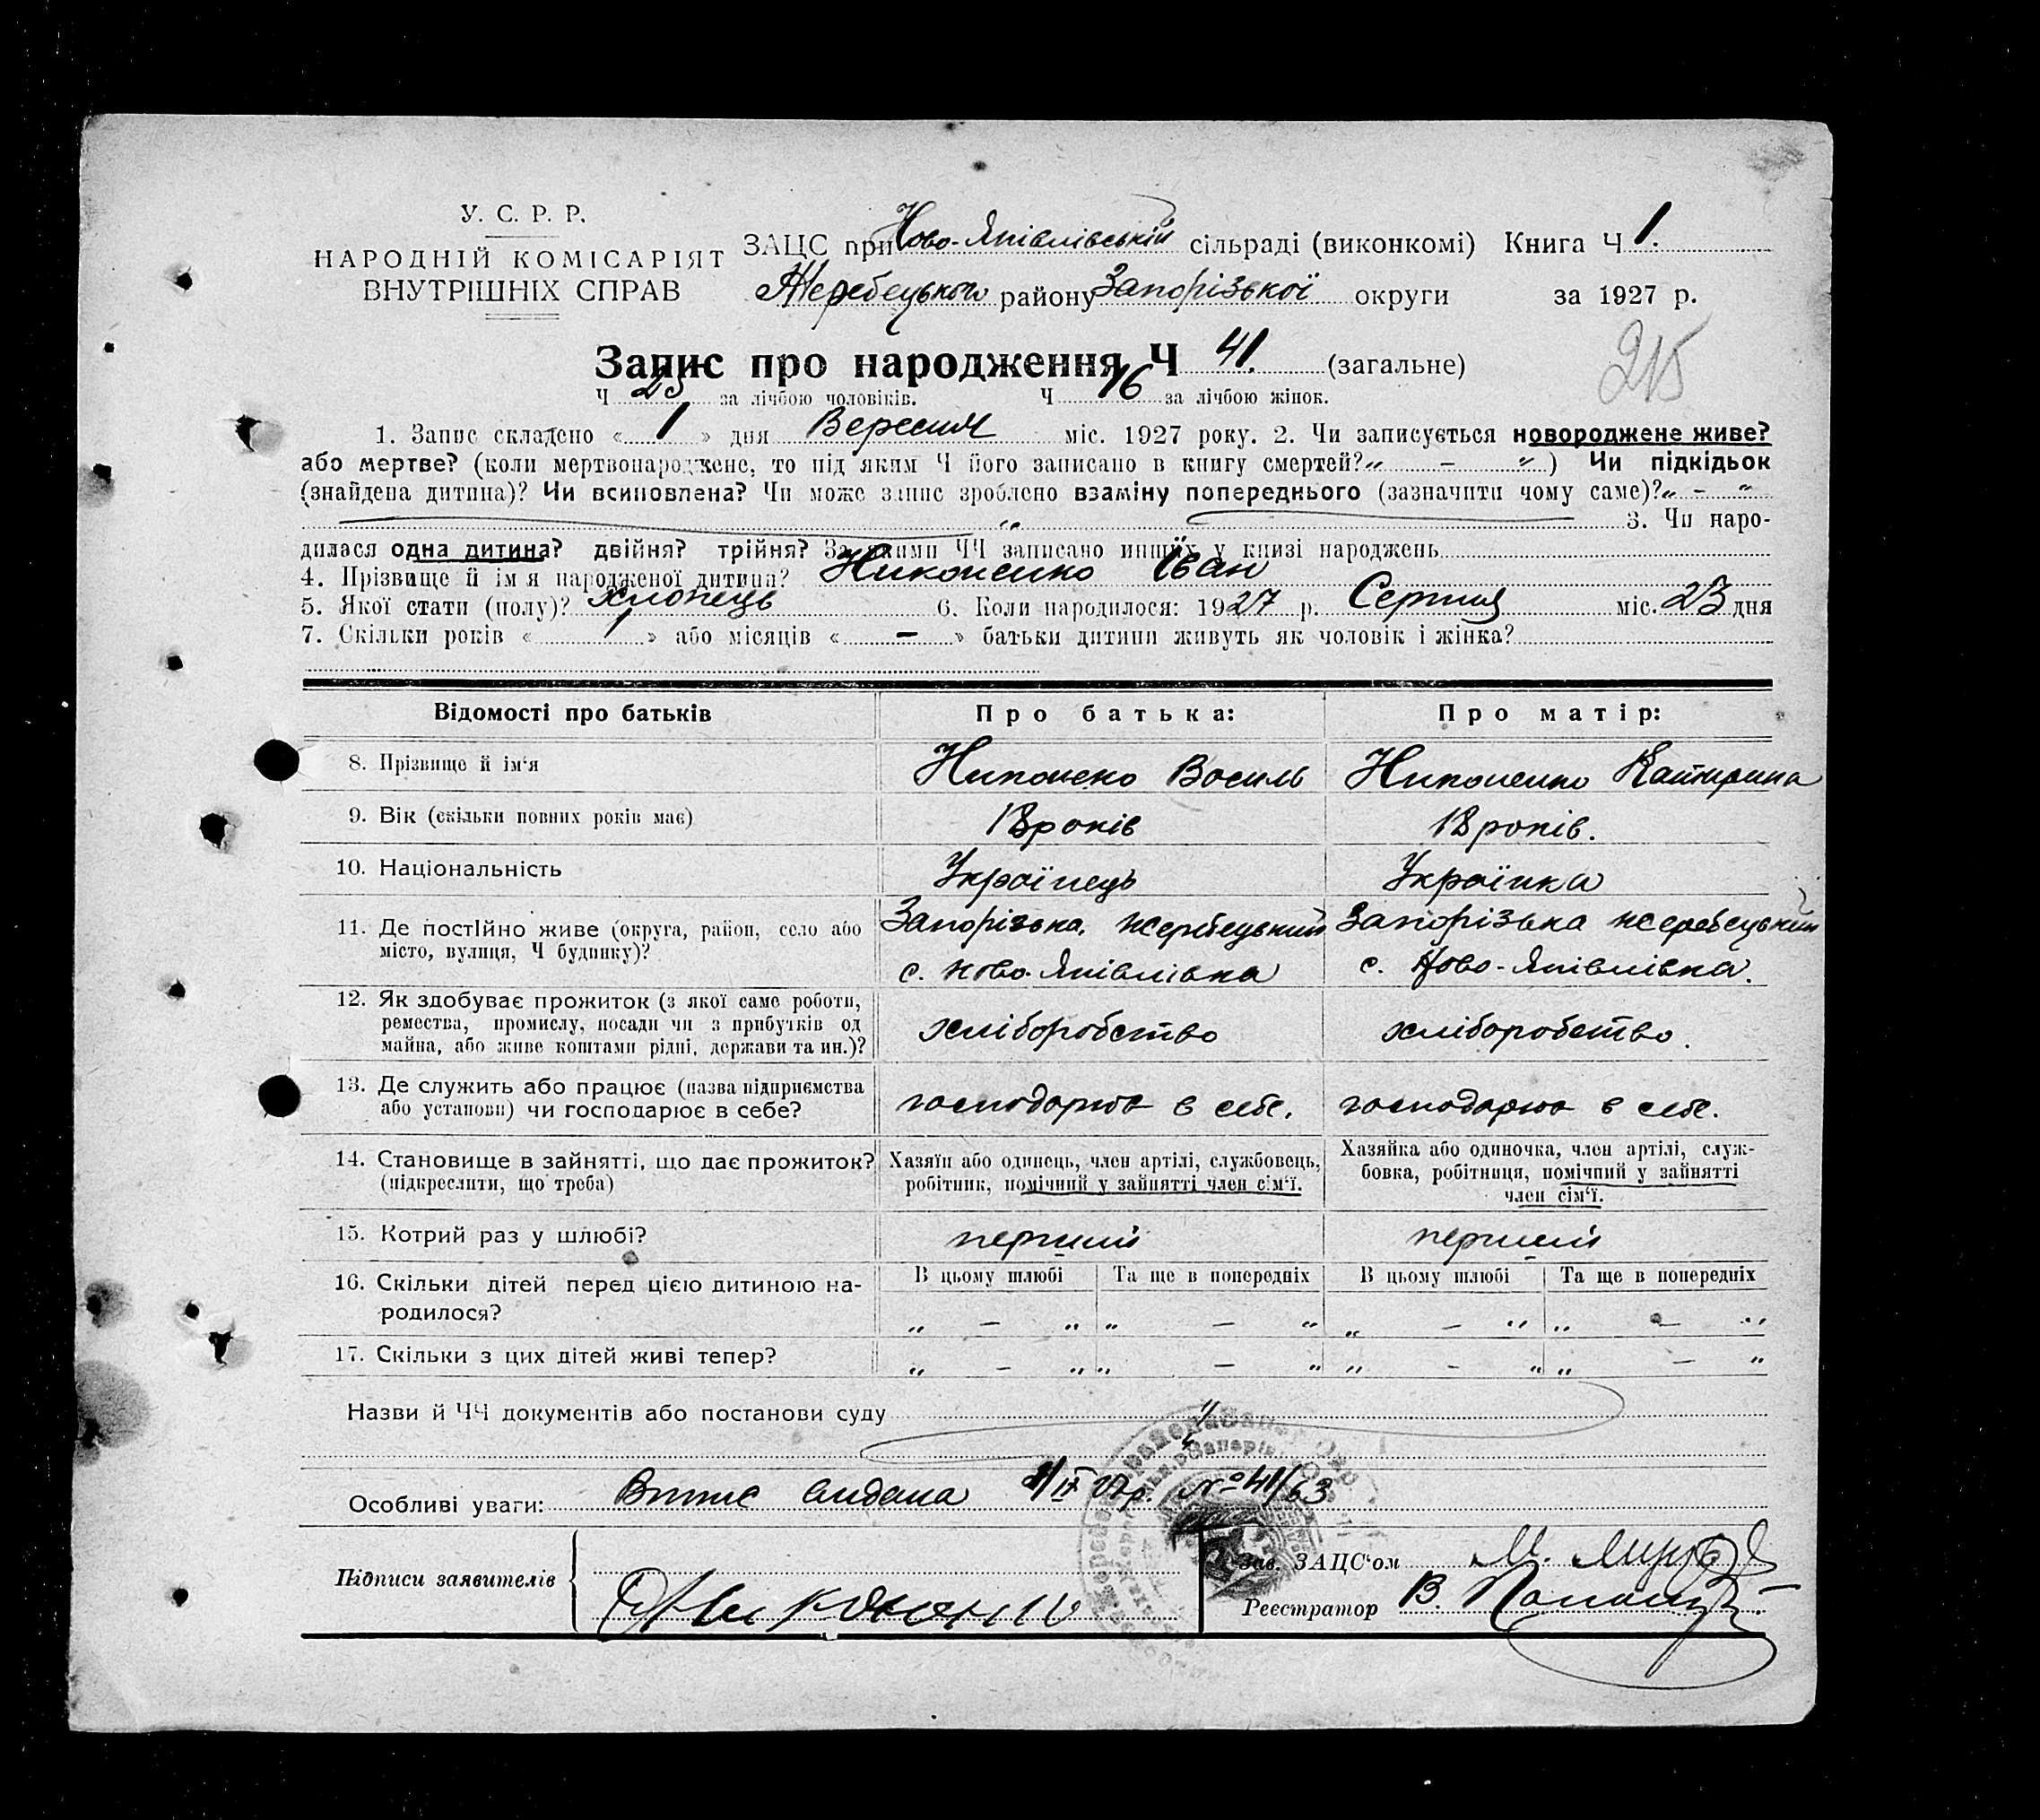 У. С. Р. Р.
НАРОДНІЙ КОМІСАРІЯТ
ВНУТРІШНІХ СПРАВ
ЗАЦС при Ново-Яківлівській сільраді (виконкомі) Книга Ч 1.
Жеребецького району Запорізької округи за 1927 р.
215
Запис про народження Ч 41. (загальне)
Ч 25 за лічбою чоловіків. Ч 16 за лічбою жінок.
1. Запис складено « 1 » дня Вересня міс. 1927 року. 2. Чи записується новороджене живе?
або мертве? (коли мертвонароджене, то під яким Ч його записано в книгу смертей? „ – “) Чи підкідьок
(знайдена дитина)? Чи всиновлена? Чи може запис зроблено взаміну попереднього (зазначити чому саме)? „ – “
3. Чи наро-
дилася одна дитина? двійня? трійня? За якими ЧЧ записано инших у книзі народжень
4. Прізвище й ім я народженої дитини? Никоненко Іван
5. Якої стати (полу)? хлопець 6. Коли народилося: 1927 р. Серпня міс. 23 дня
7. Скільки років « 1 » або місяців « – » батьки дитини живуть як чоловік і жінка?
Відомості про батьків Про батька: Про матір:
8. Прізвище й ім‘я Никонеко Василь Никоненко Катирина
9. Вік (скільки повних років має) 18 років 18 років.
10. Національність Українець Українка
11. Де постійно живе (округа, район, село або Запорізька, Жеребецький Запорізька Жеребецький
місто, вулиця, Ч будинку)? с. Ново-Яківлівка с. Ново-Яківлівка.
12. Як здобуває прожиток (з якої саме роботи,
ремества, промислу, посади чи з прибутків од хліборобство хліборобство.
майна, або живе коштами рідні, держави та ин.)?
13. Де служить або працює (назва підприємства
або установи) чи господарює в себе? господарює в себе. господарює в себе.
14. Становище в зайнятті, що дає прожиток? Хазяїн або одинець, член артілі, службовець, Хазяйка або одиночка, член артілі, служ-
(підкреслити, що треба) робітник, помічний у зайнятті член сім‘ї. бовка, робітниця, помічний у зайнятті
член сім‘ї.
15. Котрий раз у шлюбі? перший перший
16. Скільки дітей перед цією дитиною на- В цьому шлюбі Та ще в попередніх В цьому шлюбі Та ще в попередніх
родилося? „ – “ „ – “ „ – “ „ – “
17. Скільки з цих дітей живі тепер? „ – “ „ – “ „ – “ „ – “
Назви й ЧЧ документів або постанови суду
Особливі уваги: Витис видана 1/IX 27р. № 41/63
Зав. ЗАЦС‘ом М.
Підписи заявителів
Реєстратор В.